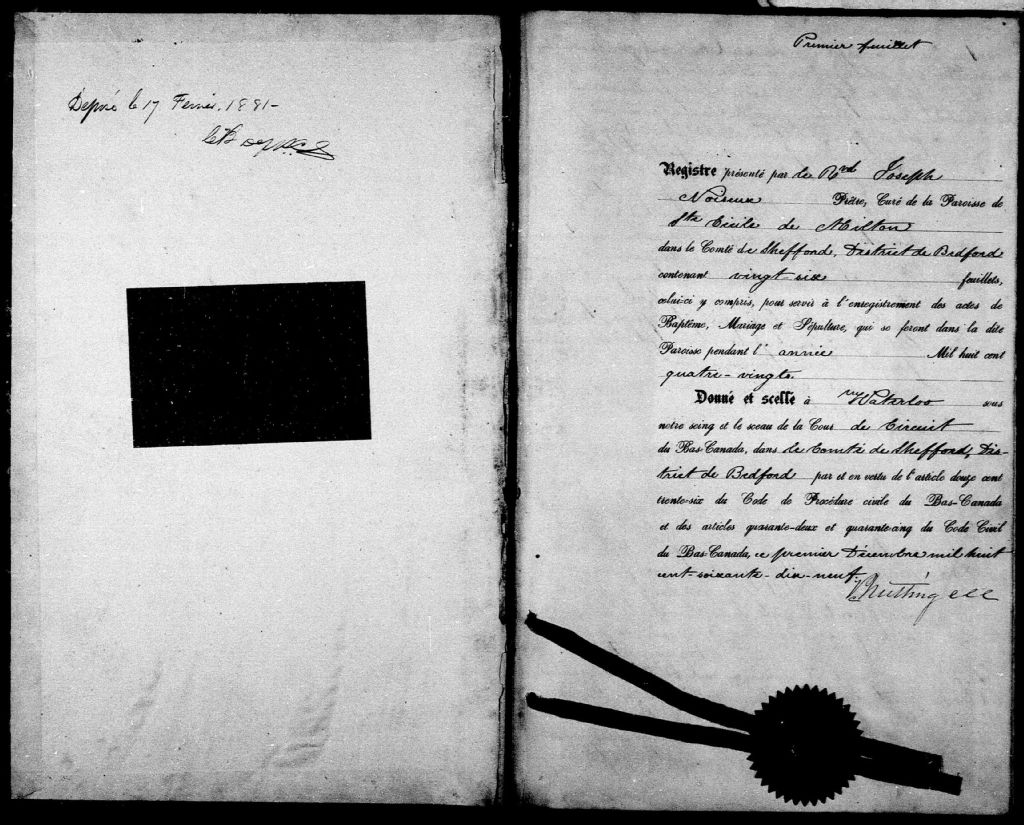 Déposé le 17 Fevrier, 1881-
Premier feuillet
Registre présenté par le Rvd Joseph
Noiseux Prêtre, Curé de la Paroisse de
Ste Cécile de Milton
dans le Comté de Shefford, District de Bedford
contenant vingt-six feuillets,
celui-ci y compris, pour servir à l'enregistrement des actes de
Baptême, Mariage et Sépulture, qui se feront dans la dite
Paroisse pendant l'année Mil huit cent
quatre-vingts.
Donné et scellé à Waterloo sous
notre seing et le sceau de la Cour de Circuit
du Bas-Canada, dans le Comté de Shefford, Dis-
trict de Bedford par et en vertu de l'article douze cent
trente-six du Code de Procédure civile du Bas-Canada
et des articles quarante-deux et quarante-cinq du Code Civil
du Bas-Canada, ce premier Décembre mil huit
cent-soixante-dix-neuf.